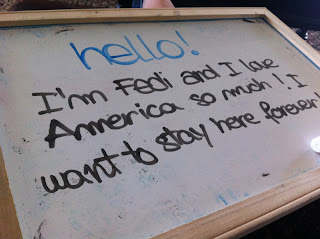 hello!
I'm Fedi and I love
America so much! I
want to stay here forever!